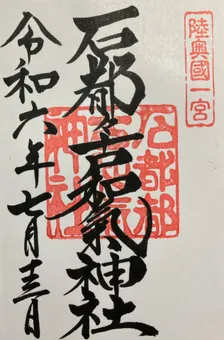 陸奧國一宮
石都々古和氣神社
石都都
古和氣
神社
令和六年七月十三日